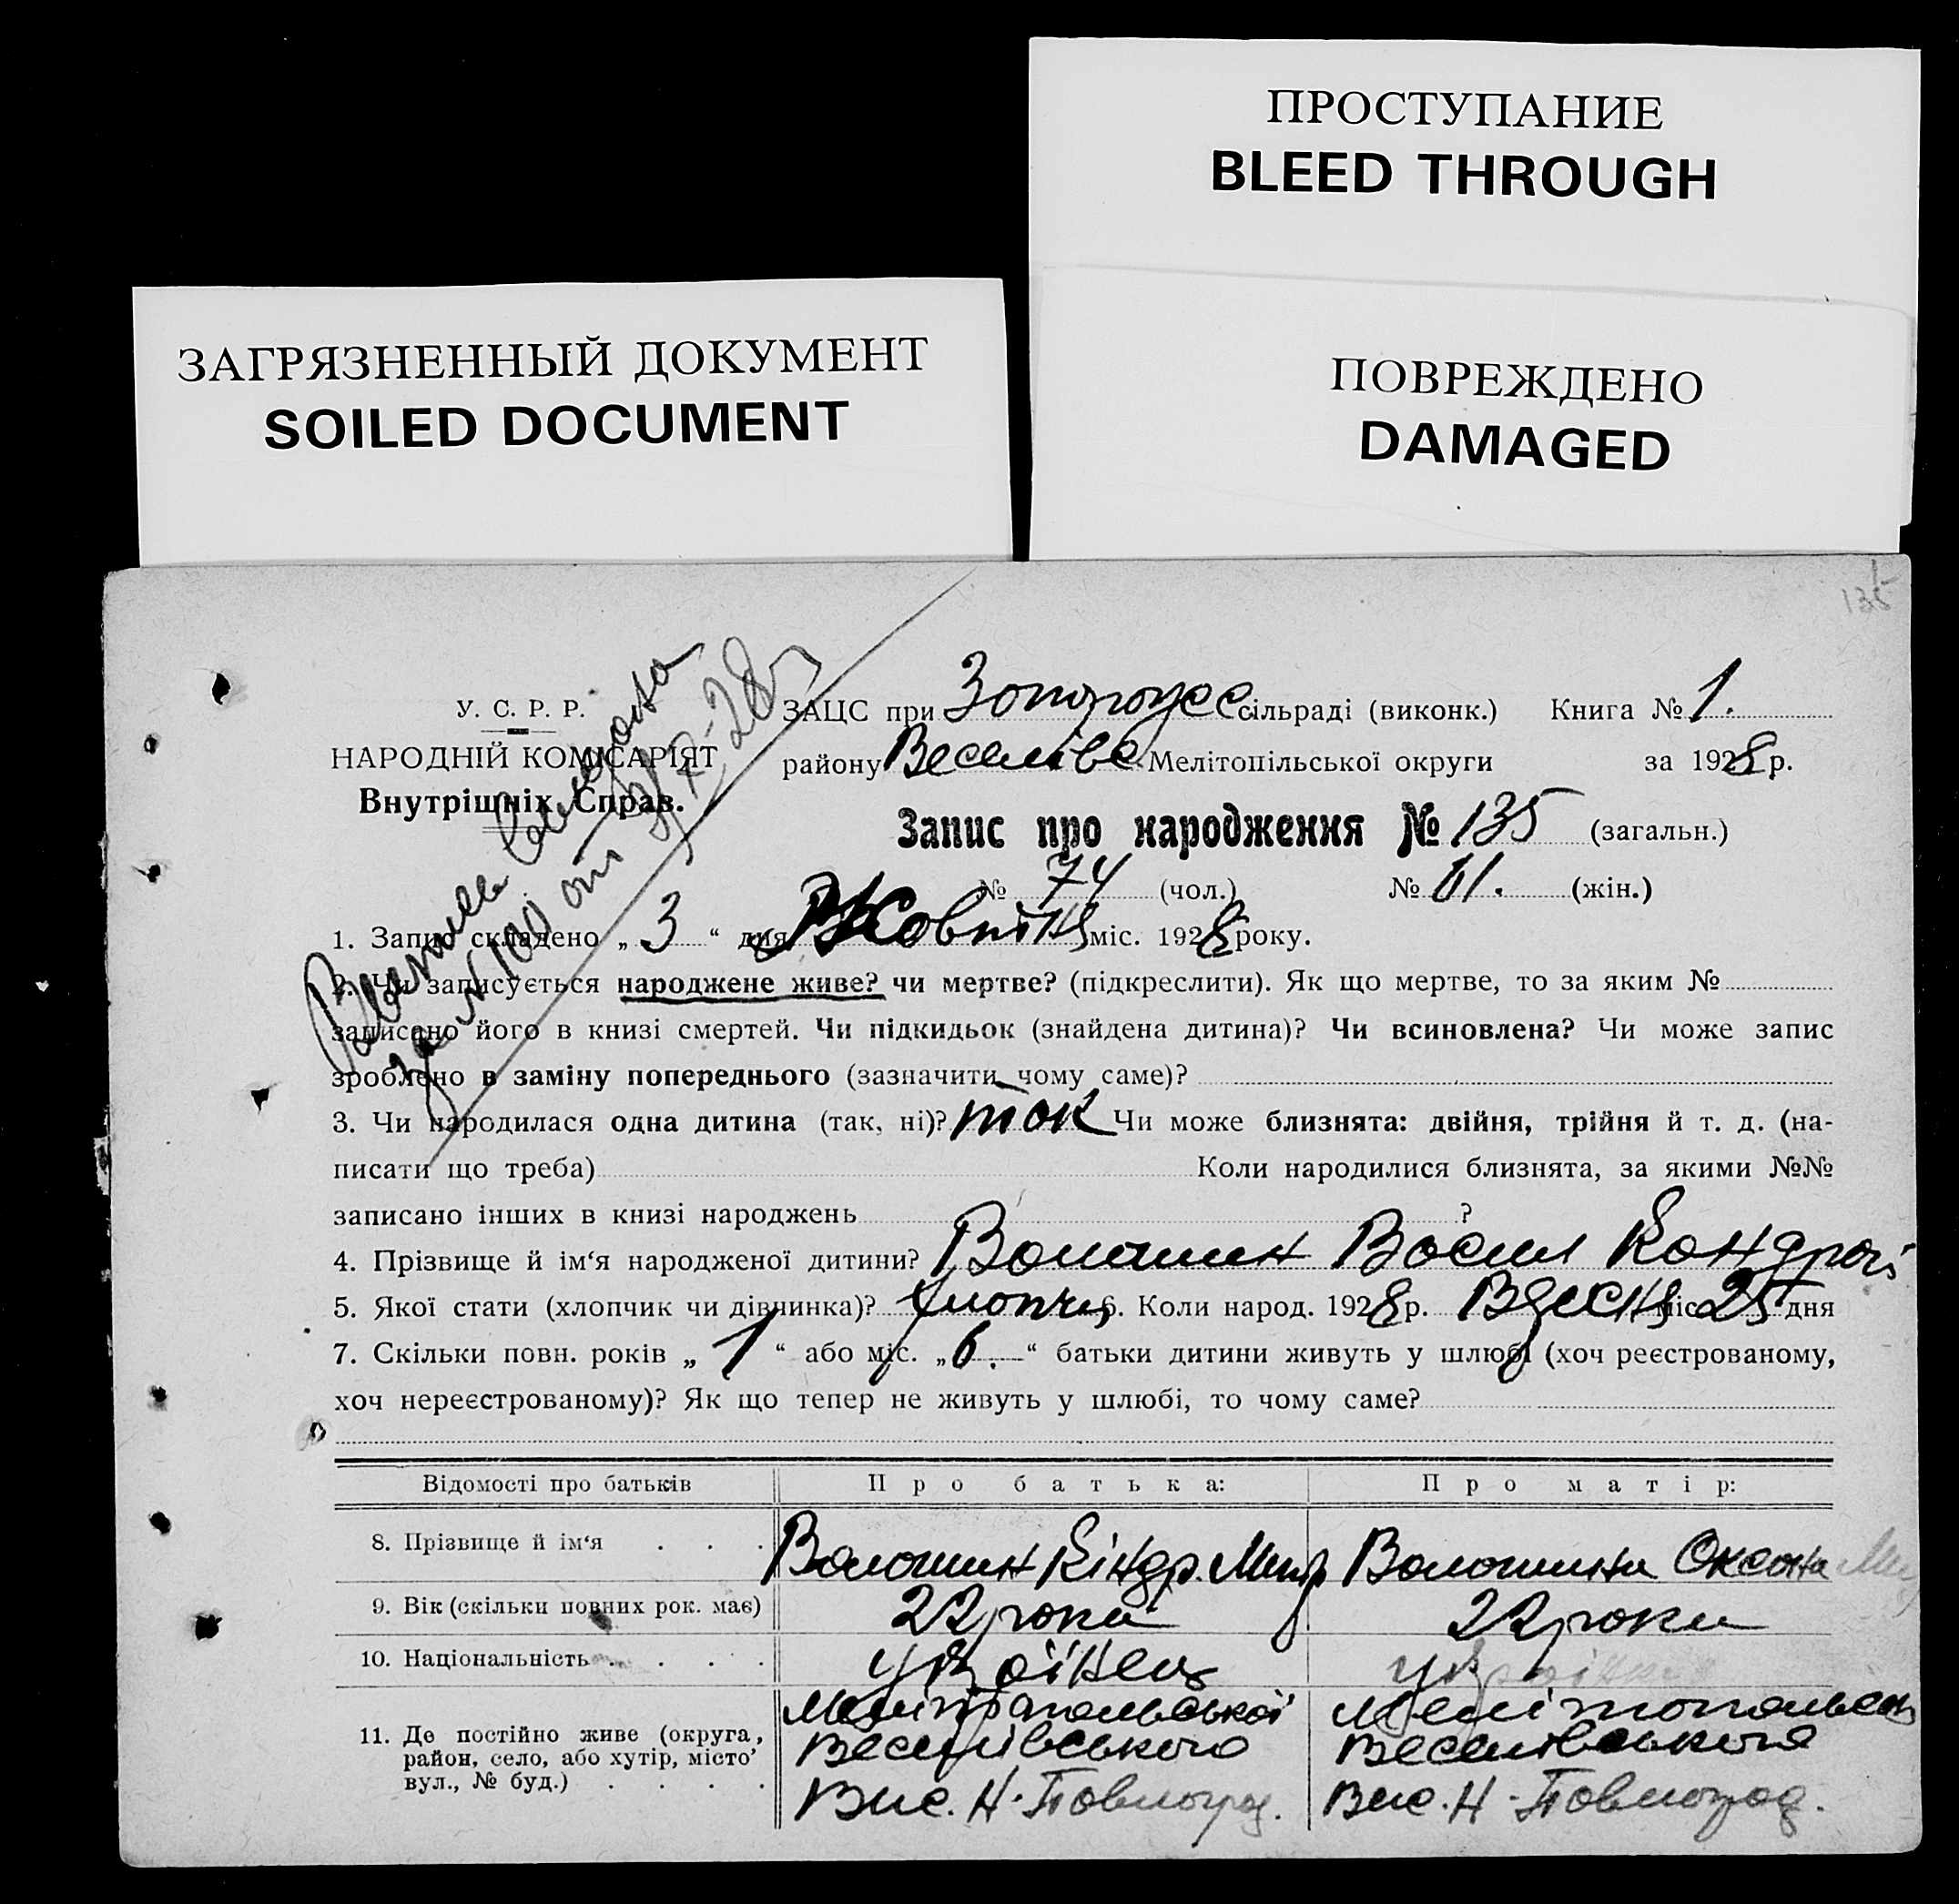 ПРОСТУПАНИЕ
BLEED THROUGH
ЗАГРЯЗНЕННЫЙ ДОКУМЕНТ
SOILED DOCUMENT
ПОВРЕЖДЕНО
DAMAGED
135
У. С. Р. Р.
НАРОДНІЙ КОМІСАРІЯТ
Внутрішніх Справ.
ЗАЦС при сільраді (виконк.) Книга № 1.
району Веселівс Мелітопільської округи за 1928 р.
Запис про народження № 135 (загальн.)
№ 74 (чол.) № 61. (жін.)
за № 100 от
1. Запис складено „ 3 “ дня Жовтня міс. 1928 року.
2. Чи записується народжене живе? чи мертве? (підкреслити). Як що мертве, то за яким №
записано його в книзі смертей. Чи підкидьок (знайдена дитина)? Чи всиновлена? Чи може запис
зроблено в заміну попереднього (зазначити чому саме)?
3. Чи народилася одна дитина (так, ні)? так Чи може близнята: двійня, трійня й т. д. (на-
писати що треба) Коли народилися близнята, за якими №№
записано інших в книзі народжень ?
4. Прізвище й ім‘я народженої дитини? Волошин Васил Кондрат
5. Якої стати (хлопчик чи дівчинка)? Хлопчик 6. Коли народ. 1928 р. Вересня міс. 25 дня
7. Скільки повн. років „ 1 “ або міс. „ 6. “ батьки дитини живуть у шлюбі (хоч реєстрованому,
хоч нереєстрованому)? Як що тепер не живуть у шлюбі, то чому саме?
Відомості про батьків Про батька: Про матір:
8. Прізвище й ім‘я . . . Волошин Кіндр. Волошина Оксана
9. Вік (скільки повних рок. має) 22 роки 22 роки
10. Національність . . . . українец українка
11. Де постійно живе (округа, район, село, або хутір, місто’ вул., № буд.) . . . .
Мелітопольської
Веселівського
Вис. Н-Павлоград.
Мелітопольськ
Веселівського
Вис. Н-Павлоград.